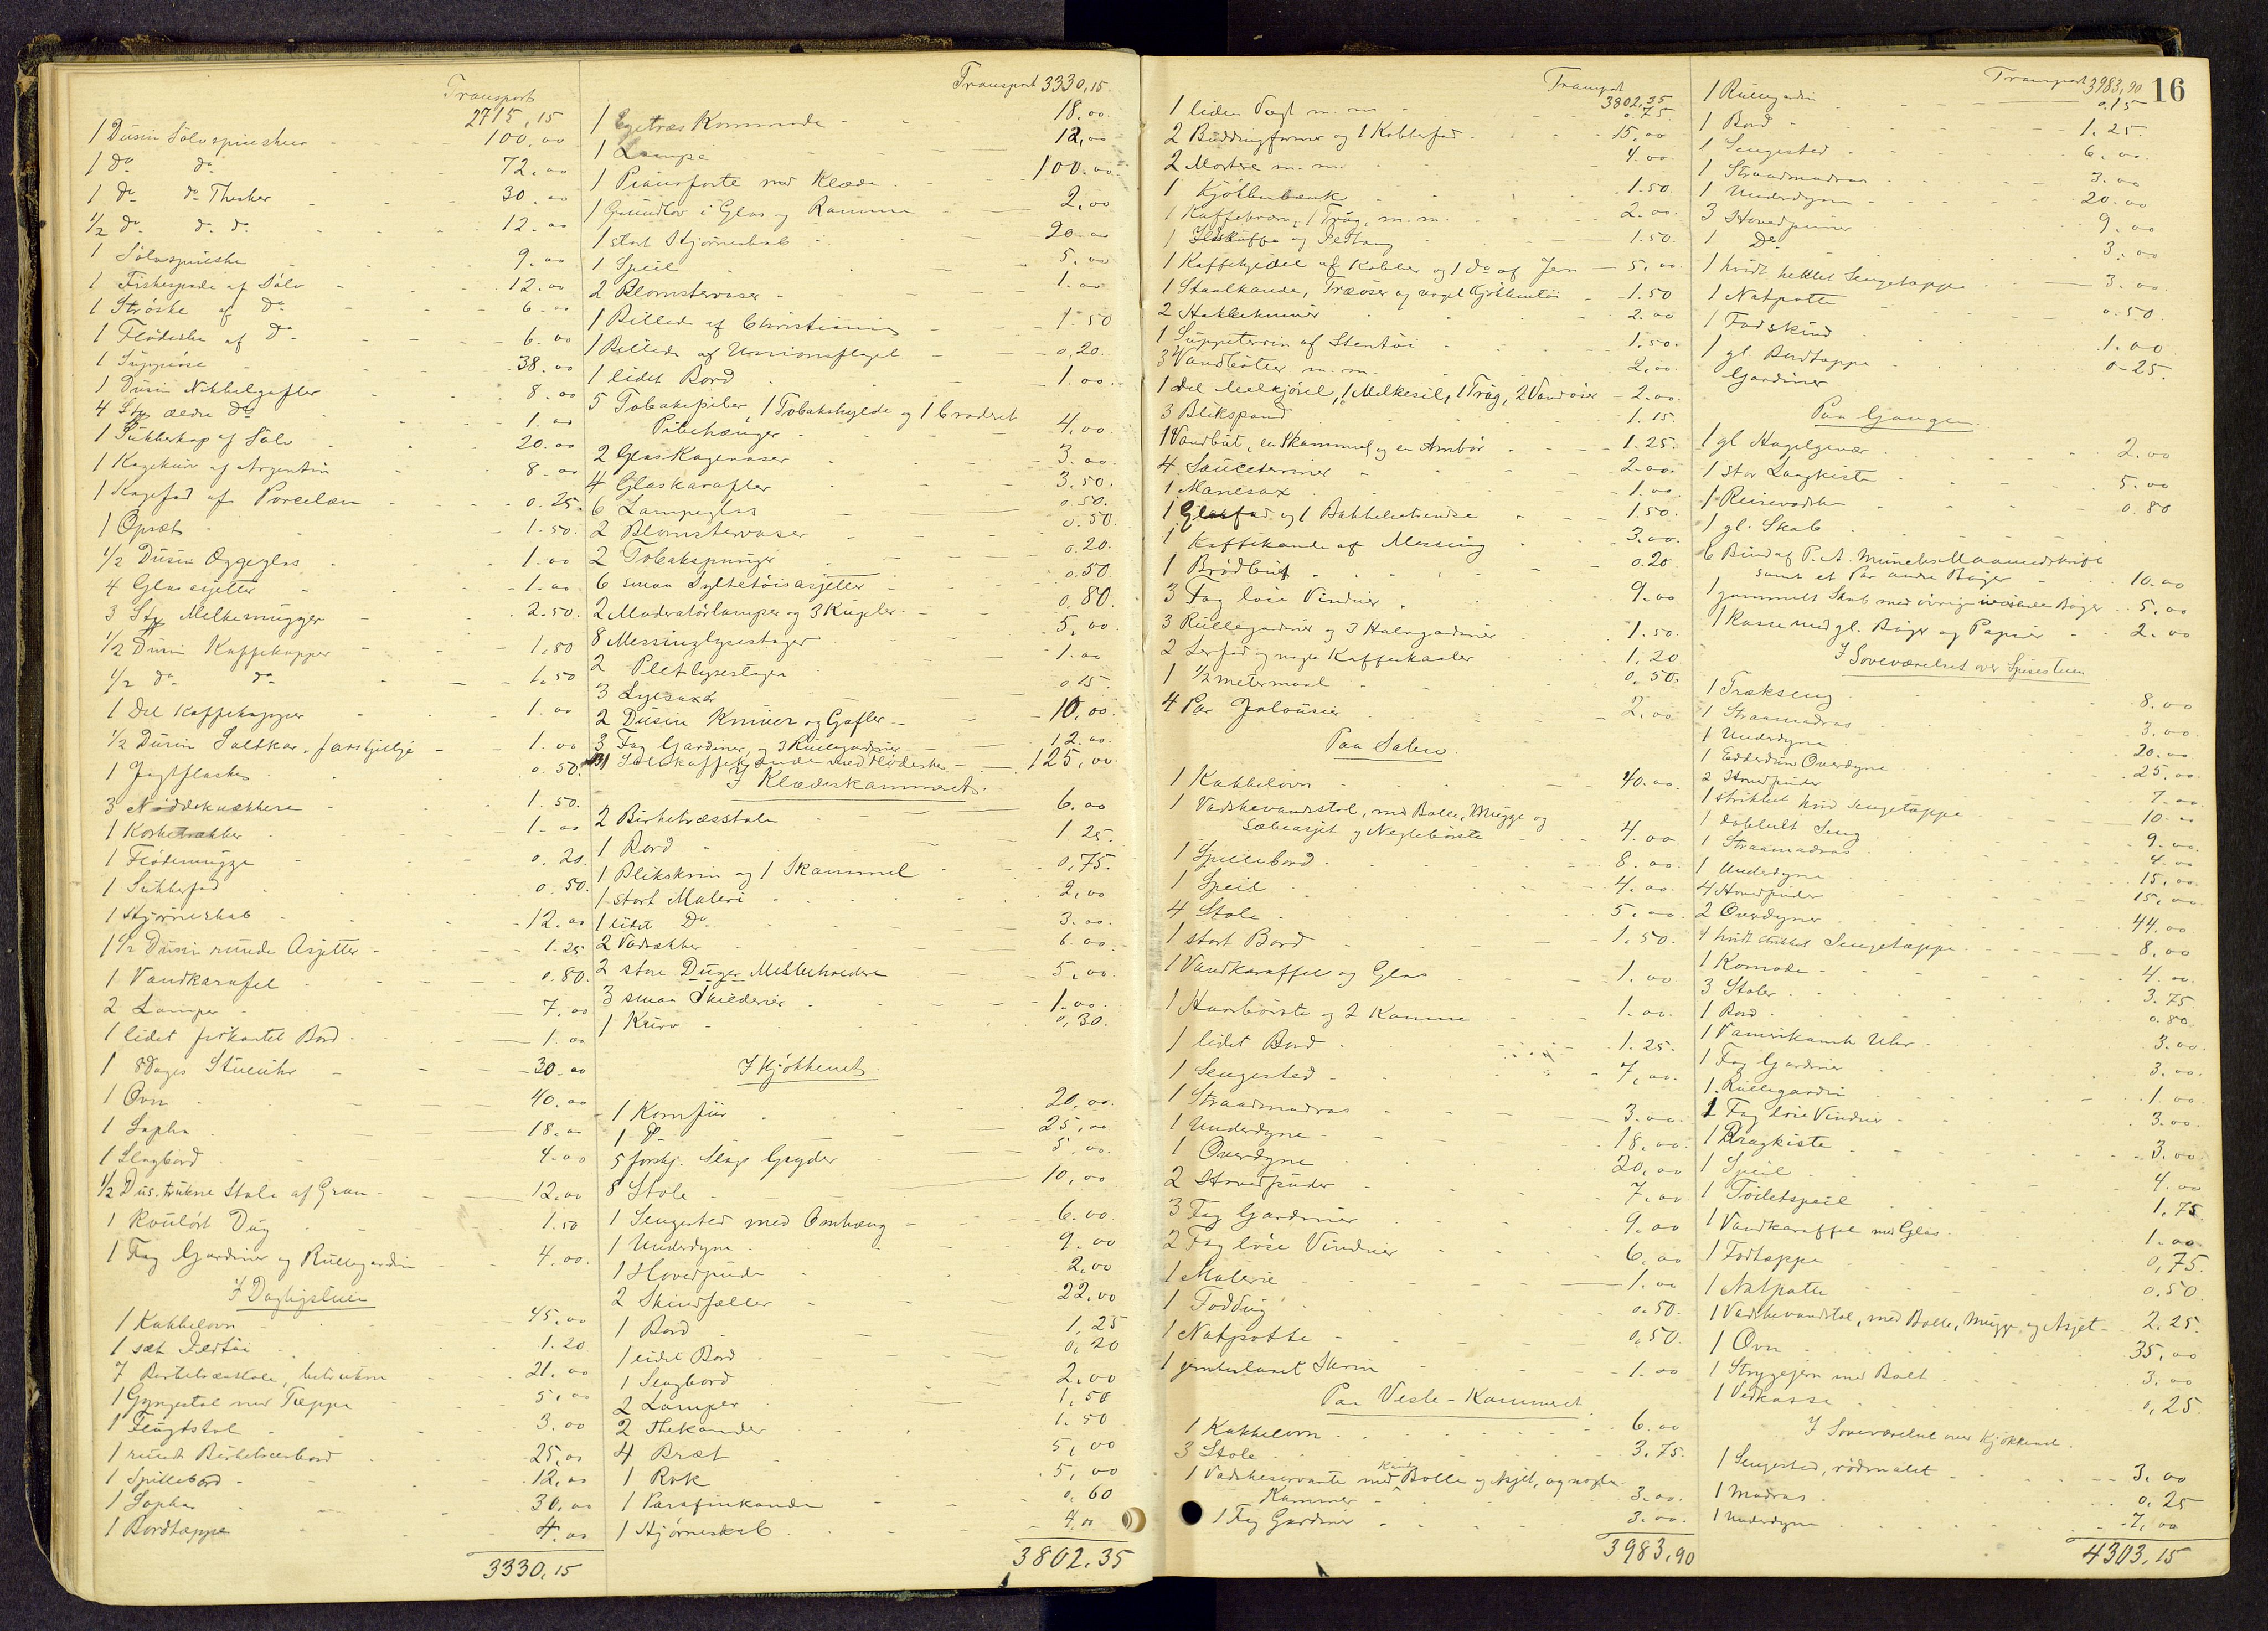 Transport
2715,15
1 Dusin Sølvspiseskeer 100.00
1 do do 72.00
1 do do Theskeer 30.00
1/2 do do do 12.00
1 Sølvspiseske 9.00
1 Fiskespade af Sølv 12.00
1 Strøske af do 6.00
1 Flødeske af do 6.00
1 Suppeøse 38.00
1 Dusin Nikkelgafler 8.00
4 Stk ældre do 1.00
1 Sukkerkop af Sølv 20.00
1 Kagekurv af Argentin 8.00
1 Kagefad af Porcelæn 0.25
1 Opsats 1.50
1/2 Dusin Æggeglas 1.00
4 Glasasjetter 1.00
3 Stk Melkemugger 2.50
1/2 Dusin Kaffekopper 1.80
1/2 do do 1.50
1 Del Kaffekopper 1.00
1/2 Dusin Saltkar, forskjellige 1.00
1 Jagtflaske 0.50
3 Nøddeknækkere 1.50
1 Korketrækker 1.00
1 Flødemugge 0.20
1 Sukkerfad 0.50
1 Hjørneskab 12.00
1 1/2 Dusin runde Asjetter 1.25
1 Vandkarafel 0.80
2 Lamper 7.00
1 lidet firkantet Bord 1.00
1 8Dages Stueuhr 30.00
1 Ovn 40.00
1 Sopha 18.00
1 Slagbord 4.00
1/2 Dus. trukne Stole af Gran 12.00
1 Voulørt Dug 1.50
1 Fag Gardiner og Rullegardin 4.00
I Dagligstuen
1 Kakkelovn 45.00
1 sæt Ildtøi 1.20
7 Birketræsstole, betrukne 21.00
1 Gyngestol med Tæppe 5.00
1 Flugtstol 3.00
1 rundt Birketræsbord 25.00
1 Spillebord 12.00
1 Sopha 30.00
1 Bordtæppe 4.00
3330,15
Transport 3330,15
1 Egetræs Kommode 18.00
1 Lampe 12,00
1 Pianoforte med Klæde 100.00
1 Grundlov i Glas og Ramme 2.00
1 stort Hjørneskab 20.00
1 Speil 5.00
2 Blomstervaser 1.00
1 Billede af Christiania 1.50
1 Billede af Unionsflaget 0,20
1 lidet Bord 1.00
5 Tobakspiber, 1 Tobakshylde og 1 broderet
Pibehænger 4.00
2 Glas Kagevaser 3.00
4 Glaskarafler 3.50
6 Lampeglas 0.50
2 Blomstervaser 0.50
2 Tobakspunger 0.20
6 smaa Syltetøisasjetter 0.50
2 Moderatørlamper og 3 Kupler 0,80
8 Messinglysestager 5,00
2 Pletlysestager 1.00
3 Lysesaxe 0.15
2 Dusin Kniver og Gafler 10,00
3 Fag Gardiner og 3 Rullegardiner 12.00
1 Sølvkaffekande med Flødeske 125,00
I Klædeskammeret
2 Birketræsstole 6.00
1 Bord 1.25
1 Blikskrin og 1 Skammel 0,75
1 stort Maleri 2,00
1 lidet Do 3.00
2 Vadsækker 6.00
2 store Duger Mellemværker 5,00
3 smaa Skilderier 1.00
1 Kurv 0,30
I Kjøkkenet
1 Komfur 20,00
1 Do 25,00
5 forskj. Slags Gryder 5,00
8 Stole 10,00
1 Sengested med Omhæng 6.00
1 Underdyne 9.00
1 Hovedpude 2,00
2 Skindfæller 22.00
1 Bord 1,25
1 lidet Bord 0,20
1 Slagbord 2.00
2 Lamper 1,50
2 Thekander 1.50
4 Bræt 5,00
1 Rok 5,00
1 Parafinkande 0,60
1 Hjørneskab 4.00
3802.35
16
Transport
3802,35
1 liden Vægt m.m. 0.75
2 Buddingformer og 1 Kobberfad 15.00
2 Mortere m.m. 4.00
1 Kjøkkenbænk 1.50
1 Kaffebrænder, 1 Trug, m.m. 2.00
1 Ildskuffe og Ildtang 1.50
1 Kaffekjedel af Kobber og 1 do af Jern 5,00
1 Staalkande, Træøser og noget Kjøkkentøi 1.50
2 Hakkekniver 2.00
1 Suppeterrin af Stentøi 1.50
3 Vandbøtter m.m. 2,00
1 Del Melkjørel, 1 Melkesil, 1 Trug, 2 Vandøser 2.00
3 Blikspand 1.15
1 Vandbut, en Skammel og en Ambør 1.25
4 Sauceterriner 2.00
1 Manesax 1.00
1 Glasfad og 1 Bakkelsetrendse 1.50
1 Kaffekande af Messing 3.00
1 Brødbut 0.20
3 Fag løse Vinduer 9.00
3 Rullegardiner og 3 Halvgardiner 1.50
2 Lerfad og nogle Kaffeskaaler 1,20
1 1/2 metermaal 0,50
4 Par Jalousier 2,00
Paa Salen
1 Kakkelovn 40.00
1 Vadskevandstol, med Bolle, Mugge og
Sæbeasjet og Neglebørste 4.00
1 Spillebord 8.00
1 Speil 4.00
4 Stole 5,00
1 stort Bord 1.50
1 Vandkaraffel og Glas 1.00
1 Haarbørste og 2 Kamme 1.00
1 lidet Bord 1.25
1 Sengested 7,00
1 Straamadras 3.00
1 Underdyne 18,00
1 Overdyne 20,00
2 Hovedpuder 7,00
3 Fag Gardiner 9.00
2 Fag løse Vinduer 6,00
1 Malerie 1.00
1 Foddug 0.50
1 Natpotte 0,50
1 jernbeslaaet Skrin 1.00
Paa Vesle-Kammeret
1 Kakkelovn 6.00
3 Stole 3,75
1 Vadskeservante med Kande Bolle og Asjet, og nogle
Kammer 3.00
1 Fag Gardiner 3.00
3983,90
Transport 3983,90
1 Rullegardin 0,15
1 Bord 1.25
1 Sengested 6.00
1 Straamadras 3.00
1 Underdyne 20.00
3 Hovedpuder 9.00
1 Do 3.00
1 hvidt heklet Sengetæppe 3.00
1 Natpotte 0.50
1 Fodskind 1.00
1 gl. Bordtæppe 0.25
Gardiner
Paa Gangen
1 gl Hagelgevær 2.00
1 stor Langkiste 5.00
1 Reisevadsk 0.80
1 gl. Skab
6 Bind af P. A. Munchs Maanedskrift
samt et Par andre Bøger 10.00
1 gammelt Skab med øvrige Bøger 5,00
1 Kasse med gl. Bøger og Papirer 2.00
I Soveværelset over Spisestuen
1 Trækseng 8.00
1 Straamadras 3.00
1 Underdyne 20.00
1 Edderduns Overdyne 25.00
2 Hovedpuder 7.00
1 strikket hvid Sengetæppe 10.00
1 dobbelt Seng 9.00
1 Straamadras 4.00
1 Underdyne 15,00
4 Hovedpuder 15,00
2 Overdyner 44.00
1 hvidt strikket Sengetæppe 8,00
1 Komode 4.00
3 Stoler 3.75
1 Bord 0.80
1 amerikansk Uhr 3.00
1 Fag Gardiner 3.00
1 Rullegardin 1.00
1 Fag løse Vinduer 3.00
1 Dragkiste 3.00
1 Speil 4.00
1 Toiletspeil 1,75
1 Vandkaraffel med Glas 1.00
1 Fodtæppe 0,75
1 Natpotte 0.50
1 Vadskevandstol, med Bolle, Mugge og Asjet 2.25
1 Ovn 35,00
1 Strygejern med Bolt 3.00
1 Vedkasse 0,25
I Soveværelset over Kjøkkenet
1 Sengested, rødmalet 3.00
1 Madras 0.25
1 Underdyne 7,00
4303,15